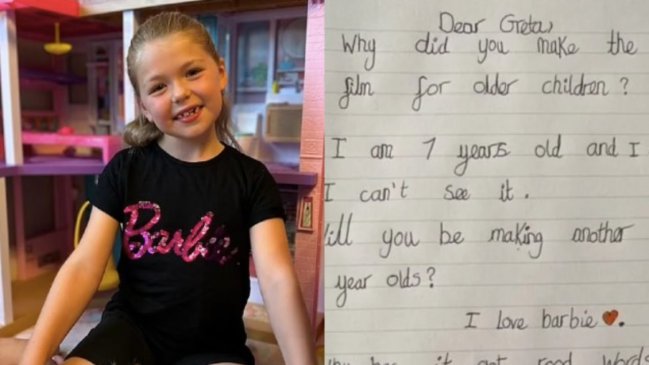 Barbie
Dear Greta,
Why did you make the
film for older children ?
I am 7 years old and I
I can't see it .
ill you be making another
year olds?
I love barbie ❤.
it got rood words